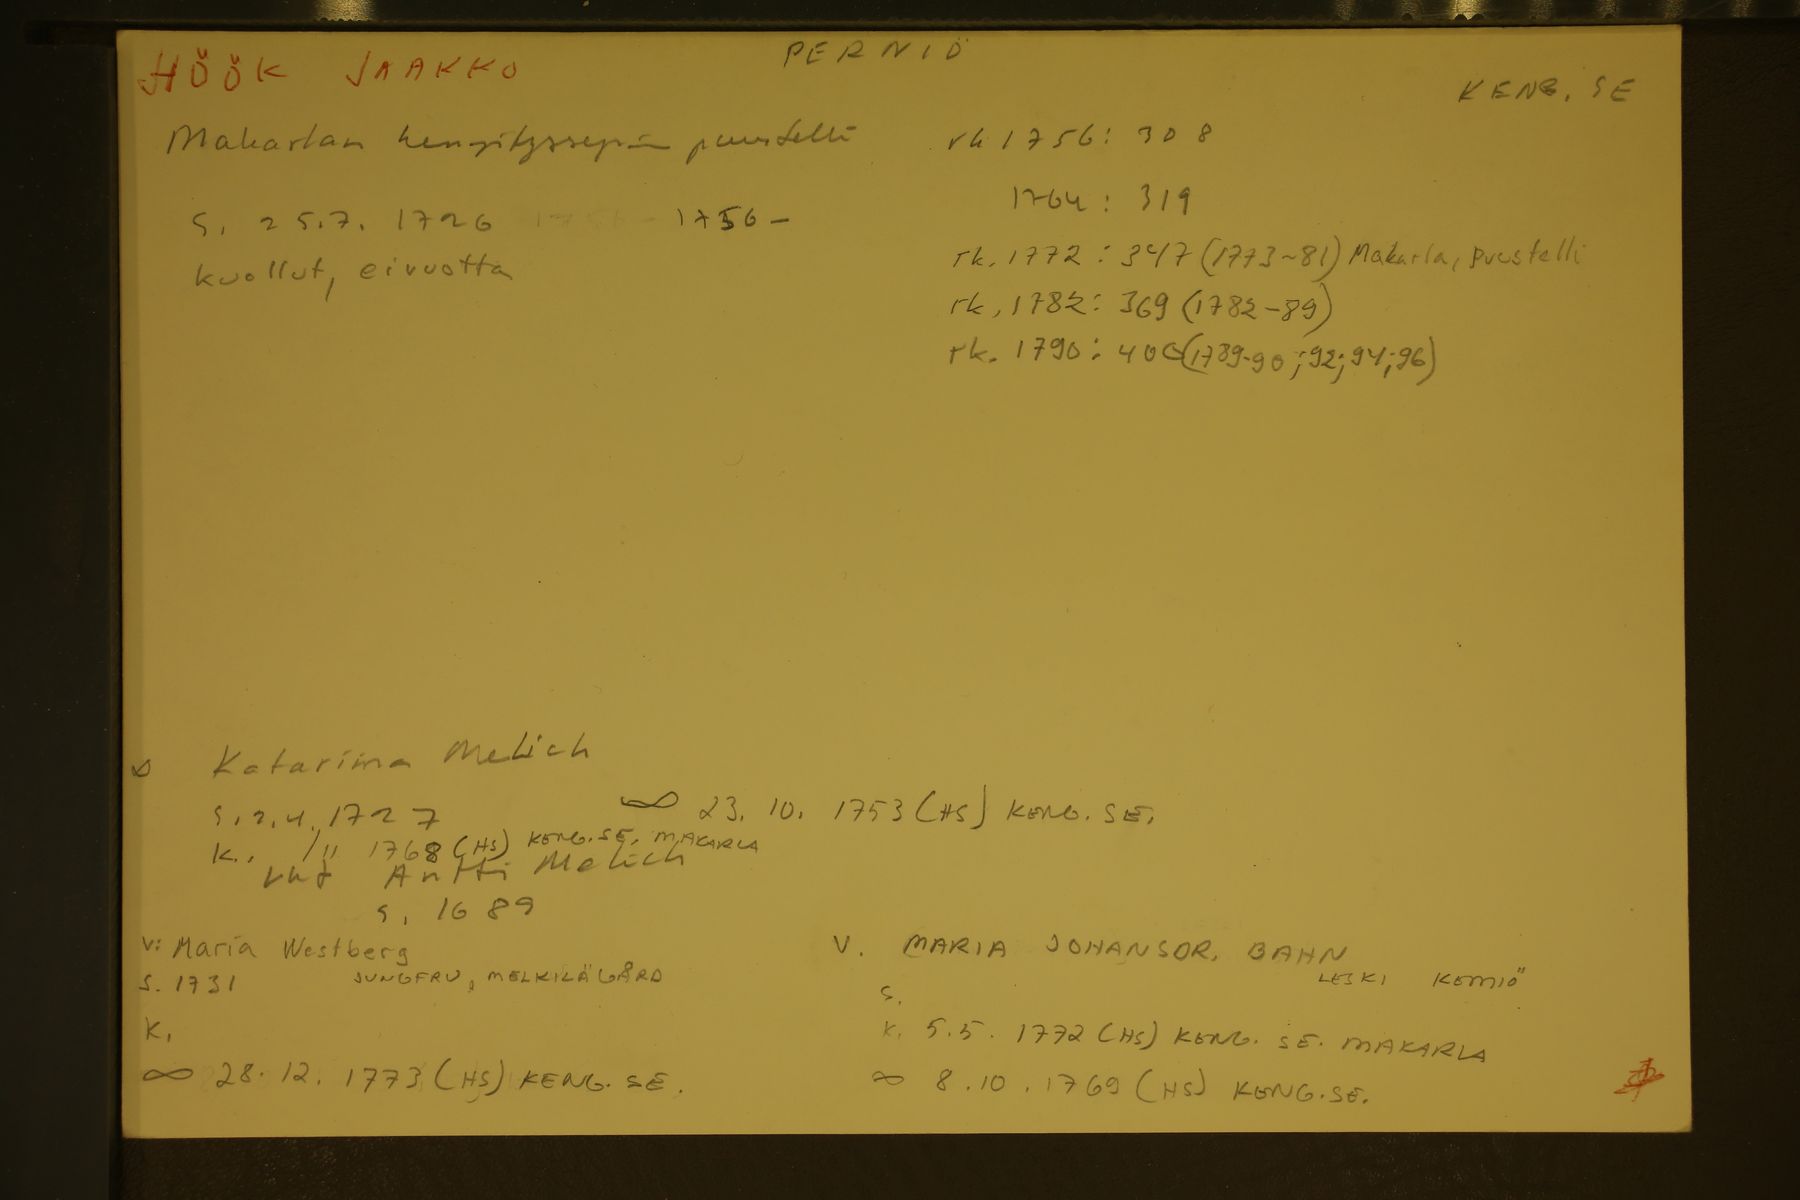 HÖÖK JAAKKO
PERNIÖ
KENG. SE
Makarlan kengityssepän puustelli
s. 25.7. 1726 1756 -
kuollut, ei vuotta
rk 1756: 308
1764: 319
rk. 1772: 347 (1773-81) Makarla, puustelli
rk, 1782: 369 (1782-89)
rk. 1790: 400 (1789-90; 92; 94; 96)
Katariina Melich
s. 2.4. 1727
∞ 23. 10. 1753 (HS) KENG. SE.
k. 1768 (HS) KENG. SE. MAKARLA
Antti Melich
s. 1689
v: Maria Westberg
JUNGFRU, MELKILÄ GÅRD
s. 1731
k.
∞ 28. 12. 1773 (HS) KENG. SE.
V. MARIA JOHANSDR. BAHN
LESKI KEMIÖ
s.
k. 5.5. 1772 (HS) KENG. SE. MAKARLA
∞ 8.10. 1769 (HS) KENG. SE.